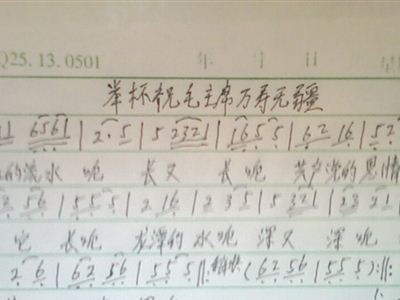 Q25.13.0501 年 月 日 星
举杯祝毛主席万寿无疆
11 6561 | 2·5 | 5 2321 | 1655 | 62 16 | 52
的流水 呃 长又 长 呃 共产党的恩情
2 56 | 555 | 2 16 | 2 35 | 5 321 | 23 21 |
它 长呃 龙潭的 水呃 深又 深 呃
2 6 | 62 56 | 555 :|| (62 56 | 555) :||